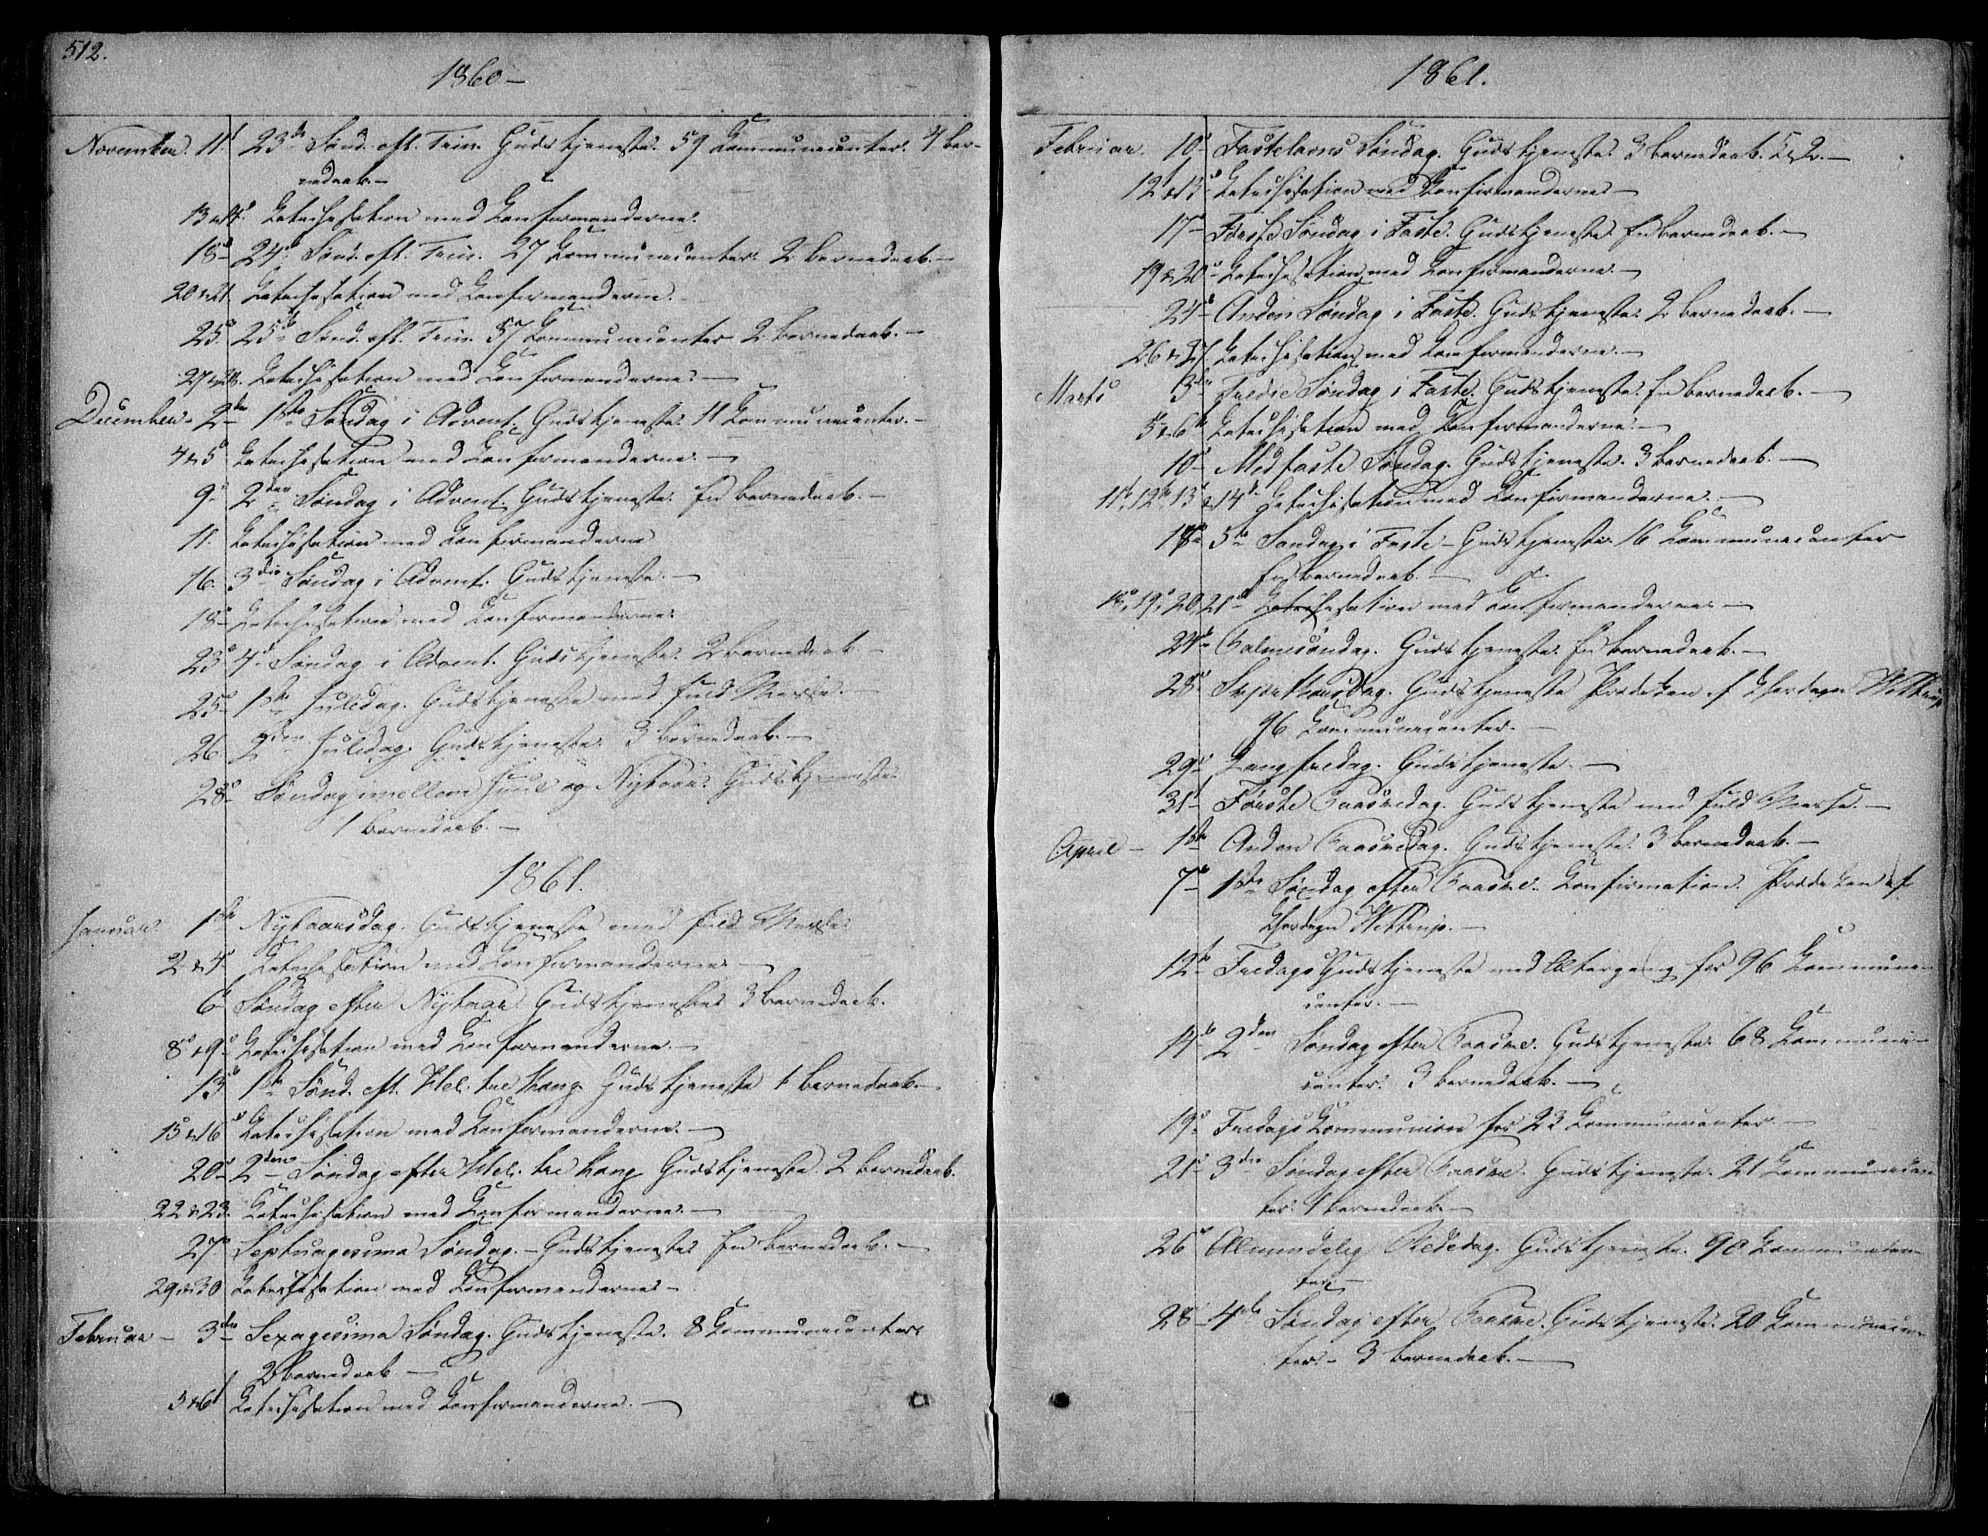 512.
1860 –
November. 11te 23de Sønd. eft. Trin. Gudstjeneste. 59 Communicanter. 4 Bar-
nedaab. –
13 & 14de Catechisation med Confirmanderne.
18de 24de Sønd. eft. Trin. 27 Communicanter. 2 Barnedaab. –
20 & 21 Catechisation med Confirmanderne. –
25de 25de Sønd. eft. Trin. 57 Communicanter 2 Barnedaab. –
27 & 28. Catechisation med Confirmanderne. –
December – 2den 1ste Søndag i Advent. Gudstjeneste. 11 Communicanter. –
4 & 5 Catechisation med Confirmanderne. –
9de 2den Søndag i Advent. Gudstjeneste. En Barnedaab. –
11. Catechisation med Confirmanderne
16. 3die Søndag i Advent. Gudstjeneste. –
18de Catechisation med Confirmanderne.
23de 4de Søndag i Advent. Gudstjeneste. 2 Barnedaab –
25de 1ste Juledag. Gudstjeneste med fuld Messe. –
26. 2den Juledag. Gudstjeneste. 3 Barnedaab. –
28de Søndag mellem Juul og Nytaar. Gudstjeneste
1 Barnedaab. –
1861.
Januar. 1ste Nytaarsdag. Gudstjeneste med fuld Messe.
2 & 4de Catechisation med Confirmanderne. –
6 Søndag efter Nytaar. Gudstjeneste 3 Barnedaab.
8de & 9de Catechisation med Confirmanderne. –
13de 1ste Sønd. eft. Hel. tre Kong. Gudstjeneste 1 Barnedaab. –
15 & 16de Catechisation med Confirmanderne. –
20de 2den Søndag efter Hel. tre Kong. Gudstjeneste. 2 Barnedaab.
22 & 23. Catechisation med Confirmanderne. –
27de Septuagesima Søndag. – Gudstjeneste En Barnedaab. –
29 & 30 Catechisation med Confirmanderne –
Februar – 3die Sexagesima Søndag. Gudstjeneste. 8 Communicanter
2 Barnedaab –
5 & 6te Catechisation med Confirmanderne. –
1861.
Februar. 10de Fastelavns Søndag. Gudstjeneste 3 Barnedaab. –
12 & 13de Catechisation med Confirmanderne –
17de Første Søndag i Faste. Gudstjeneste En Barnedaab. –
19 & 20de Catechisation med Confirmanderne. –
24de Anden Søndag i Faste. Gudstjeneste. 2 Barnedaab. –
26 & 27. Catechisation med Confirmanderne. –
Marts 3die Tredie Søndag i Faste. Gudstjeneste. En Barnedaab. –
5 & 6te Catechisation med Confirmanderne. –
10de Midfaste Søndag. Gudstjeneste. 3 Barnedaab. –
11te, 12te, 13de & 14de Catechisation med Confirmanderne. –
17de 5te Søndag i Faste – Gudstjeneste. 16 Communicanter
En Barnedaab. –
18de, 19de, 20, 21de Catechisation med Confirmanderne –
24de Palmesøndag. Gudstjeneste. En Barnedaab. –
28de Skjærthorsdag. Gudstjeneste Prædiken af Chordegn Wittrup
96 Communicanter. –
29de Langfredag. Gudstjeneste. –
31te Første Paaskedag. Gudstjeneste med fuld Messe. –
April – 1ste Anden Paaskedag. Gudstjeneste. 3 Barnedaab. –
7de 1ste Søndag efter Paaske. Confirmation. Prædiken af
Chordegn Wittrup. –
12te Fredags Gudstjeneste med Altergang for 96 Communi-
canter. –
14de 2den Søndag efter Paaske. Gudstjeneste. 68 Communi-
canter. 3 Barnedaab. –
19de Fredags Communion for 23 Communicanter. –
21de 3die Søndag efter Paaske. Gudstjeneste. 21 Communican-
ter. 1 Barnedaab. –
26de Almindelig Bededag. Gudstjeneste. 90 Communican-
ter –
28de 4de Søndag efter Paaske. Gudstjeneste. 20 Communican-
ter. – 3 Barnedaab. –